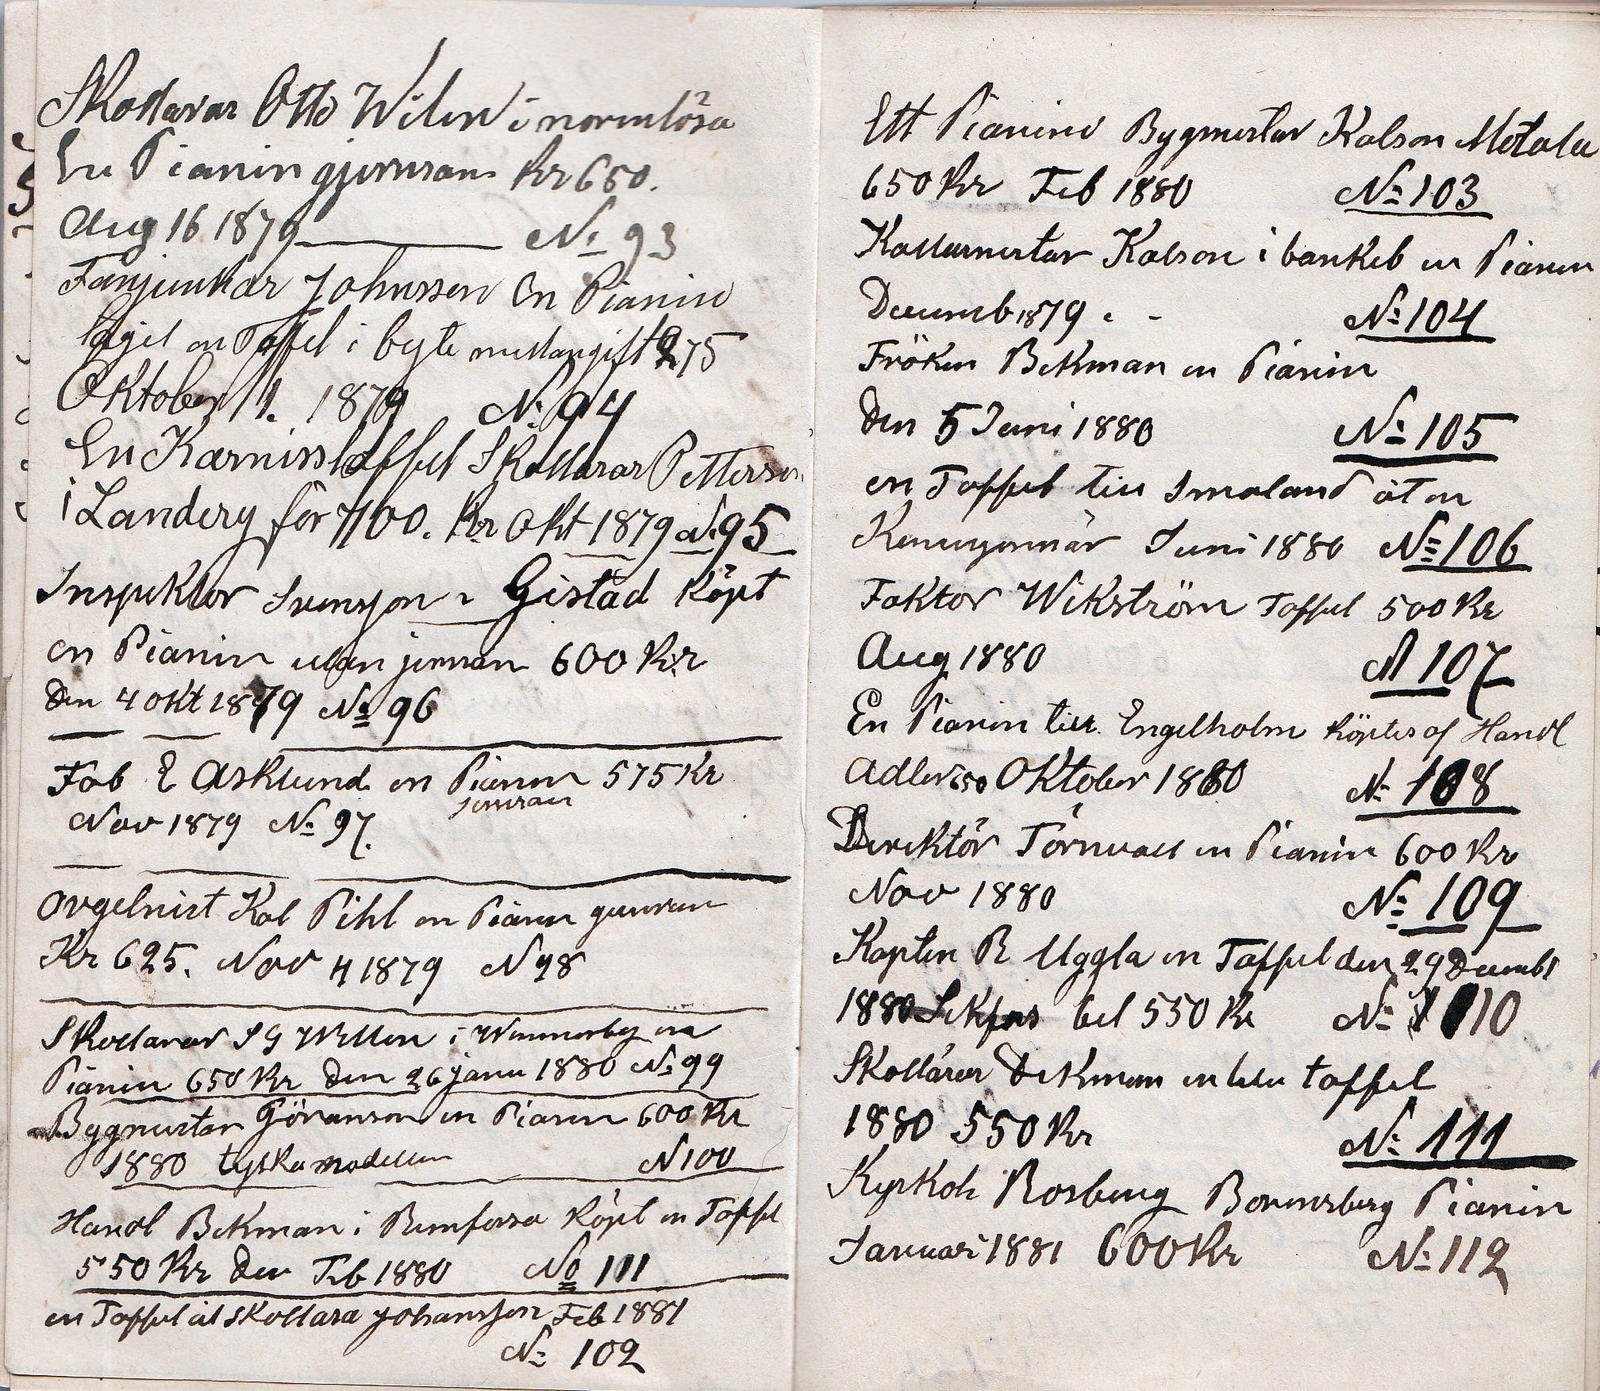 Skollärar Otto Wilen i normlösa
En Pianin gjernram Kr 650.
Aug 16 1879 No 93
Fanjunkar Johnsson En Pianin
tagit en Taffel i byte mellangift 275
Oktober 11. 1879 No 94
En Karnisstaffel Skollärar Petterson
i Landery för 700. Kr Okt 1879 No 95
Inspektor Svensson i Gistad Köpt
en Pianin utan jernram 600 Kr
den 4 Okt 1879 No 96
Fab E Asklund en Pianin 575 Kr
jernram
Nov 1879 No 97.
Orgelnist Kal Pihl en Pianin
Kr 625. Nov 4 1879 N 98
Skollärar S G Willen i Wimmerby
Pianin 650 Kr den 26 janu 1880 No 99
Bygmestar Göranson en Pianin 600 Kr
1880 tyska modellen N 100
Handl Bekman i Rumforssa Köpt en Taffel
550 Kr den Feb 1880 No 111
en Taffel åt Skollära Johansson Feb 1881
No 102
Ett Pianino Bygmestar Kalson Motala
650 Kr Feb 1880 No 103
Kallarmestar Kalson i bankeb en Pianin
Decemb 1879 No 104
Fröken Bekman en Pianin
den 5 Juni 1880 No 105
en Taffel till Smaland åt en
Juni 1880 No 106
Faktor Wikström Taffel 500 Kr
Aug 1880 N 107
En Pianin till Engelholm Köptes af Handl
Adler 650 Oktober 1880 No 108
Direktör Törnvall en Pianin 600 Kr
Nov 1880 No 109
Kapten R Uggla en Taffel den 29 Decembr
1880 bel 550 Kr No 110
Skollärar Dekman en liten taffel
1880 550 Kr No 111
Kyrkoh Rosberg Bornersberg Pianin
Januari 1881 600 Kr No 112